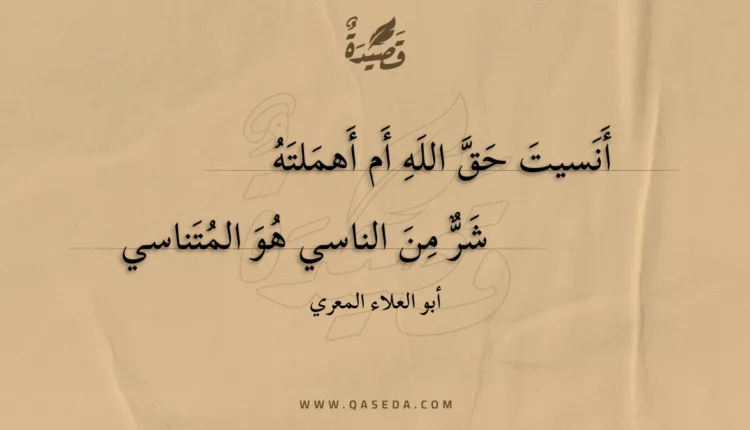 قَصِيدَةٌ
أَنَسيتَ حَقَّ اللَهِ أَم أَهمَلتَهُ
شَرٌّ مِنَ الناسي هُوَ المُتَناسي
أبو العلاء المعري
WWW.QASEDA.COM